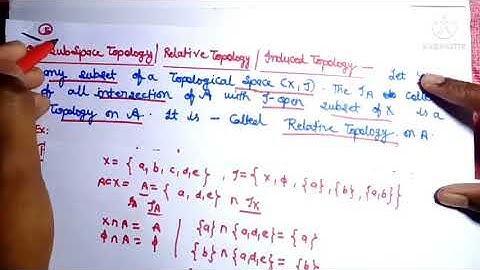 Subspace Topology / Relative Topology / Induced Topology — Let
any subset of a Topological Space (X, J). The J_A collec
of all intersection of A with J-open subset of X is a
Topology on A. It is — called Relative Topology on A.
Ex:
X = { a, b, c, d, e } , J = { X, φ, {a}, {b}, {a,b} }
A⊂X = A = { a, d, e } ∩ J_X
J_A
X∩A = A | {a} ∩ {a,d,e} = {a}
φ∩A = φ | {b} ∩ {a,d,e} = {φ}